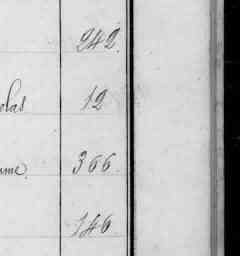 242.
olas 12
me. 366.
146.